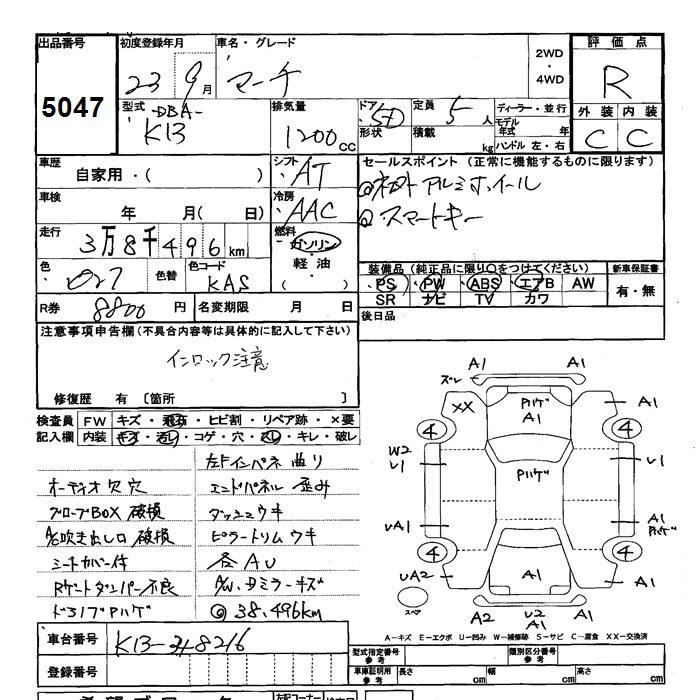 出品番号 初度登録年月 車名・グレード 2WD・4WD 評価点
5047 23 9月 マーチ R
型式 DBA-K13 排気量 1200cc ドア 5D 形状 定員 5人 積載 kg ディーラー・並行 モデル年式 年 ハンドル 左・右 外装 C 内装 C
車歴 自家用・( ) シフト AT セールスポイント (正常に機能するものに限ります)
アルミホイール
スマートキー
車検 年 月( 日) 冷房 AAC
走行 3万8千496km 燃料 ガソリン・軽油・( )
色 色替 色コード KAS 装備品 (純正品に限り○をつけてください) 新車保証書
PS PW ABS エアB AW 有・無
SR ナビ TV カワ
R券 8800円 名変期限 月 日 後日品
注意事項申告欄 (不具合内容等は具体的に記入して下さい)
インロック注意
修復歴 有 〔箇所 〕
検査員記入欄 FW キズ・ ・ヒビ割・リペア跡・×要
内装 キズ・汚レ・コゲ・穴・ ・キレ・破レ
左Fインパネ曲り
オーディオ欠穴 エンドパネル歪み
グローブBOX破損 ダッシュウキ
A/C吹き出し口破損 ピラートリムウキ
シートカバー付 各AU
Rゲートダンパー不良 ミラーキズ
ドライブハゲ 38,496km
車台番号 K13-348216
登録番号
A1 A1
ズレ
XX ハゲ A1 A1
4 4
W2 U1 ハゲ U1
UA1 A1 ハゲ
4 4
UA2 A1 A1
スペア A2 U2 A1 A1
A-キズ E-エクボ U-凹み W-補修跡 S-サビ C-腐食 XX-交換済
型式指定番号 参考 類別区分番号 参考
車庫証明用 参考 長さ cm 幅 cm 高さ cm